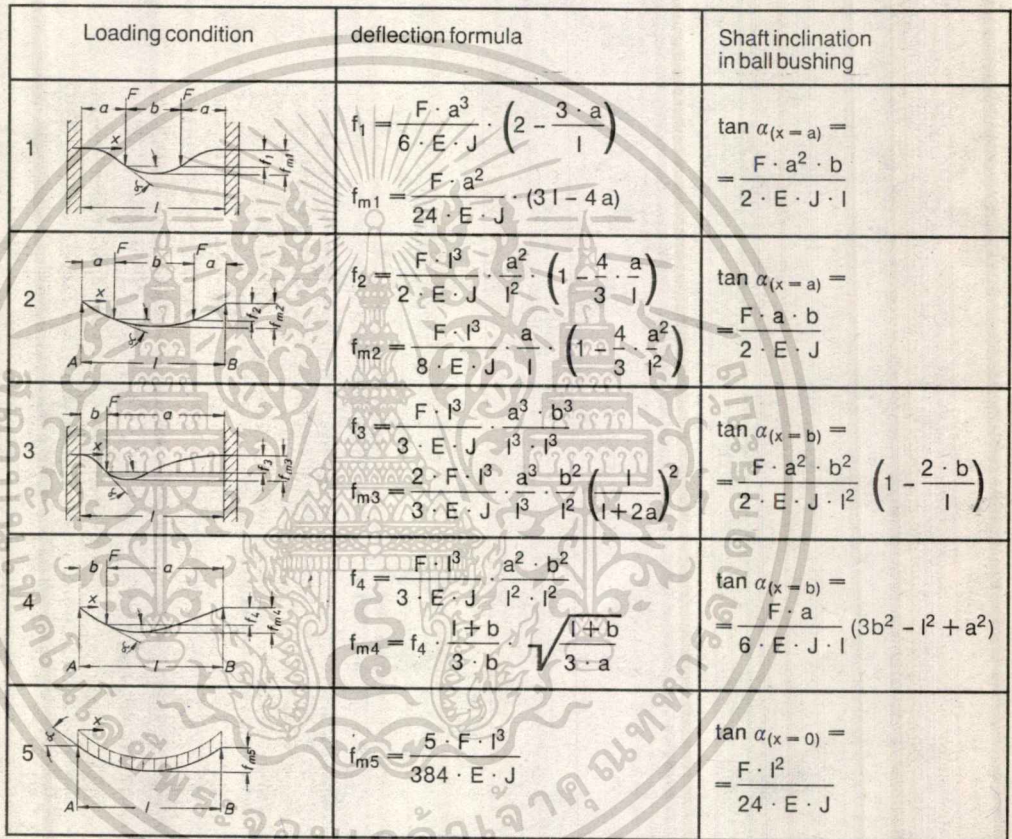 Loading condition
deflection formula
Shaft inclination
in ball bushing
1
a F b F a
x
α f₁ fₘ₁
l
f₁ = F · a³ / 6 · E · J · (2 - 3 · a / l)
fₘ₁ = F · a² / 24 · E · J · (3 l - 4 a)
tan α(x = a) =
= F · a² · b / 2 · E · J · l
2
a F b F a
x
α f₂ fₘ₂
A l B
f₂ = F · l³ / 2 · E · J · a² / l² · (1 - 4/3 · a/l)
fₘ₂ = F · l³ / 8 · E · J · a / l · (1 - 4/3 · a²/l²)
tan α(x = a) =
= F · a · b / 2 · E · J
3
b F a
x
α f₃ fₘ₃
l
f₃ = F · l³ / 3 · E · J · a³ · b³ / l³ · l³
fₘ₃ = 2 · F · l³ / 3 · E · J · a³ / l³ · b² / l² (l / l + 2a)²
tan α(x = b) =
= F · a² · b² / 2 · E · J · l² (1 - 2 · b / l)
4
b F a
x
α f₄ fₘ₄
A l B
f₄ = F · l³ / 3 · E · J · a² · b² / l² · l²
fₘ₄ = f₄ · l + b / 3 · b · √(l + b / 3 · a)
tan α(x = b) =
= F · a / 6 · E · J · l (3b² - l² + a²)
5
α x
fₘ₅
A l B
fₘ₅ = 5 · F · l³ / 384 · E · J
tan α(x = 0) =
= F · l² / 24 · E · J